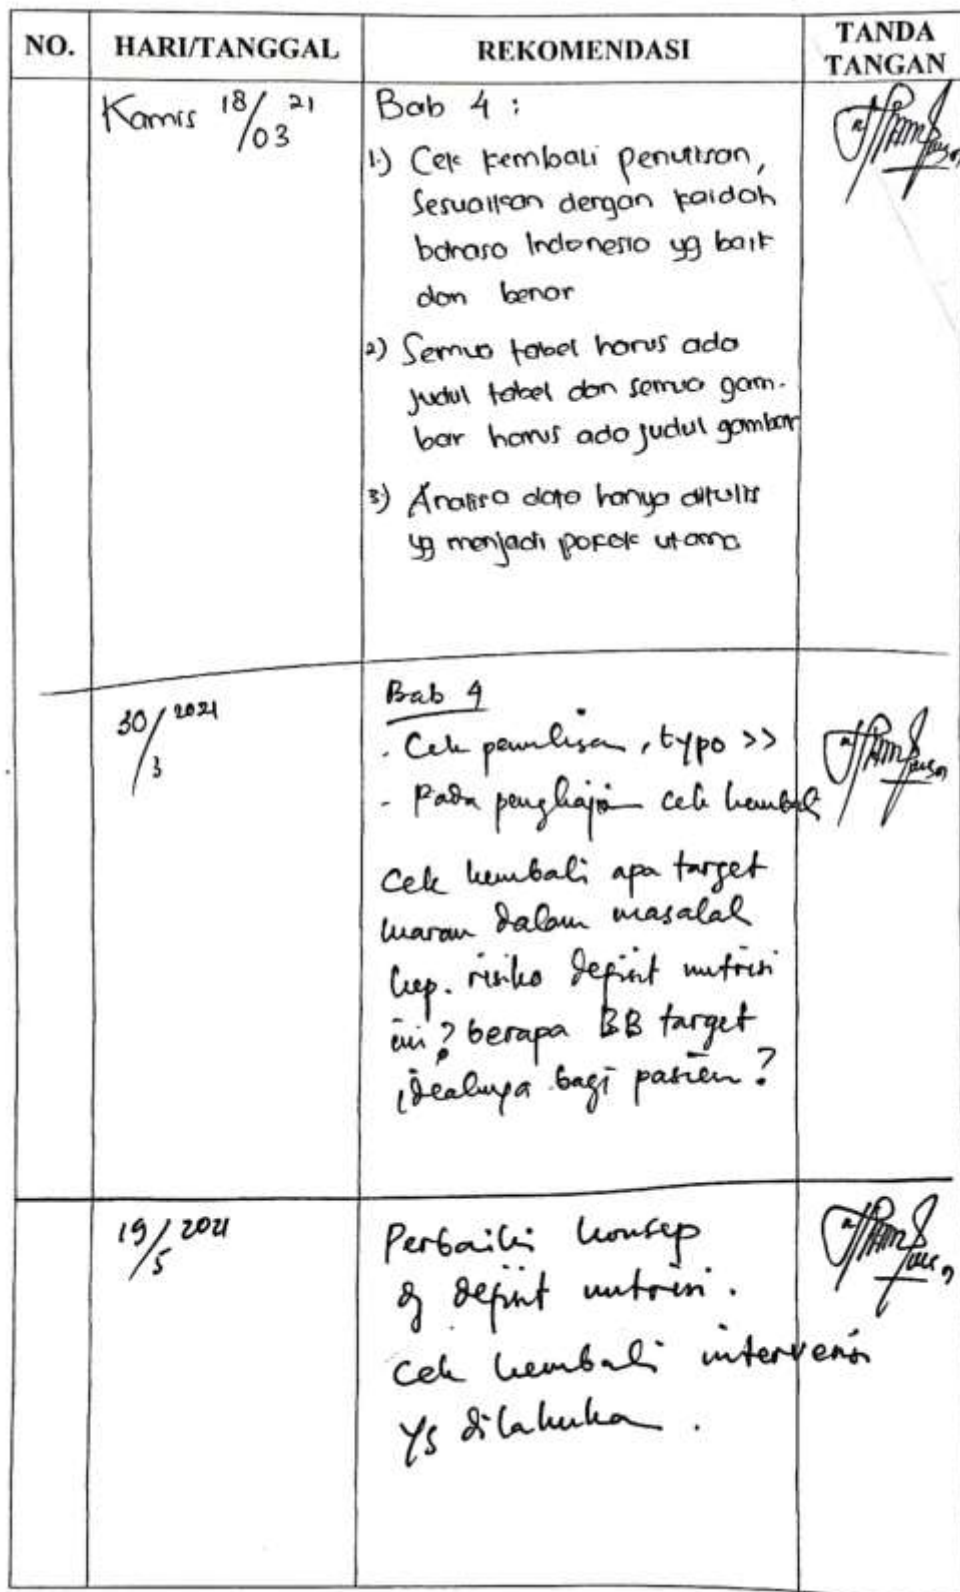 NO. HARI/TANGGAL REKOMENDASI TANDA TANGAN
Kamis 18/03 21
Bab 4 :
1.) Cek kembali penulisan,
Sesuaikan dengan kaidah
bahasa Indonesia yg baik
dan benar
2) Semua tabel harus ada
judul tabel dan semua gam-
bar harus ada judul gambar
3) Analisa data hanya ditulis
yg menjadi pokok utama
30/3 2021
Bab 4
. Cek penulisan, typo >>
- Pada pengkajian cek kembali
Cek kembali apa target
luaran dalam masalah
kep. risiko defisit nutrisi
ini? berapa BB target
idealnya bagi pasien?
19/5 2021
Perbaiki konsep
dg defisit nutrisi.
Cek kembali intervensi
yg dilakuka.